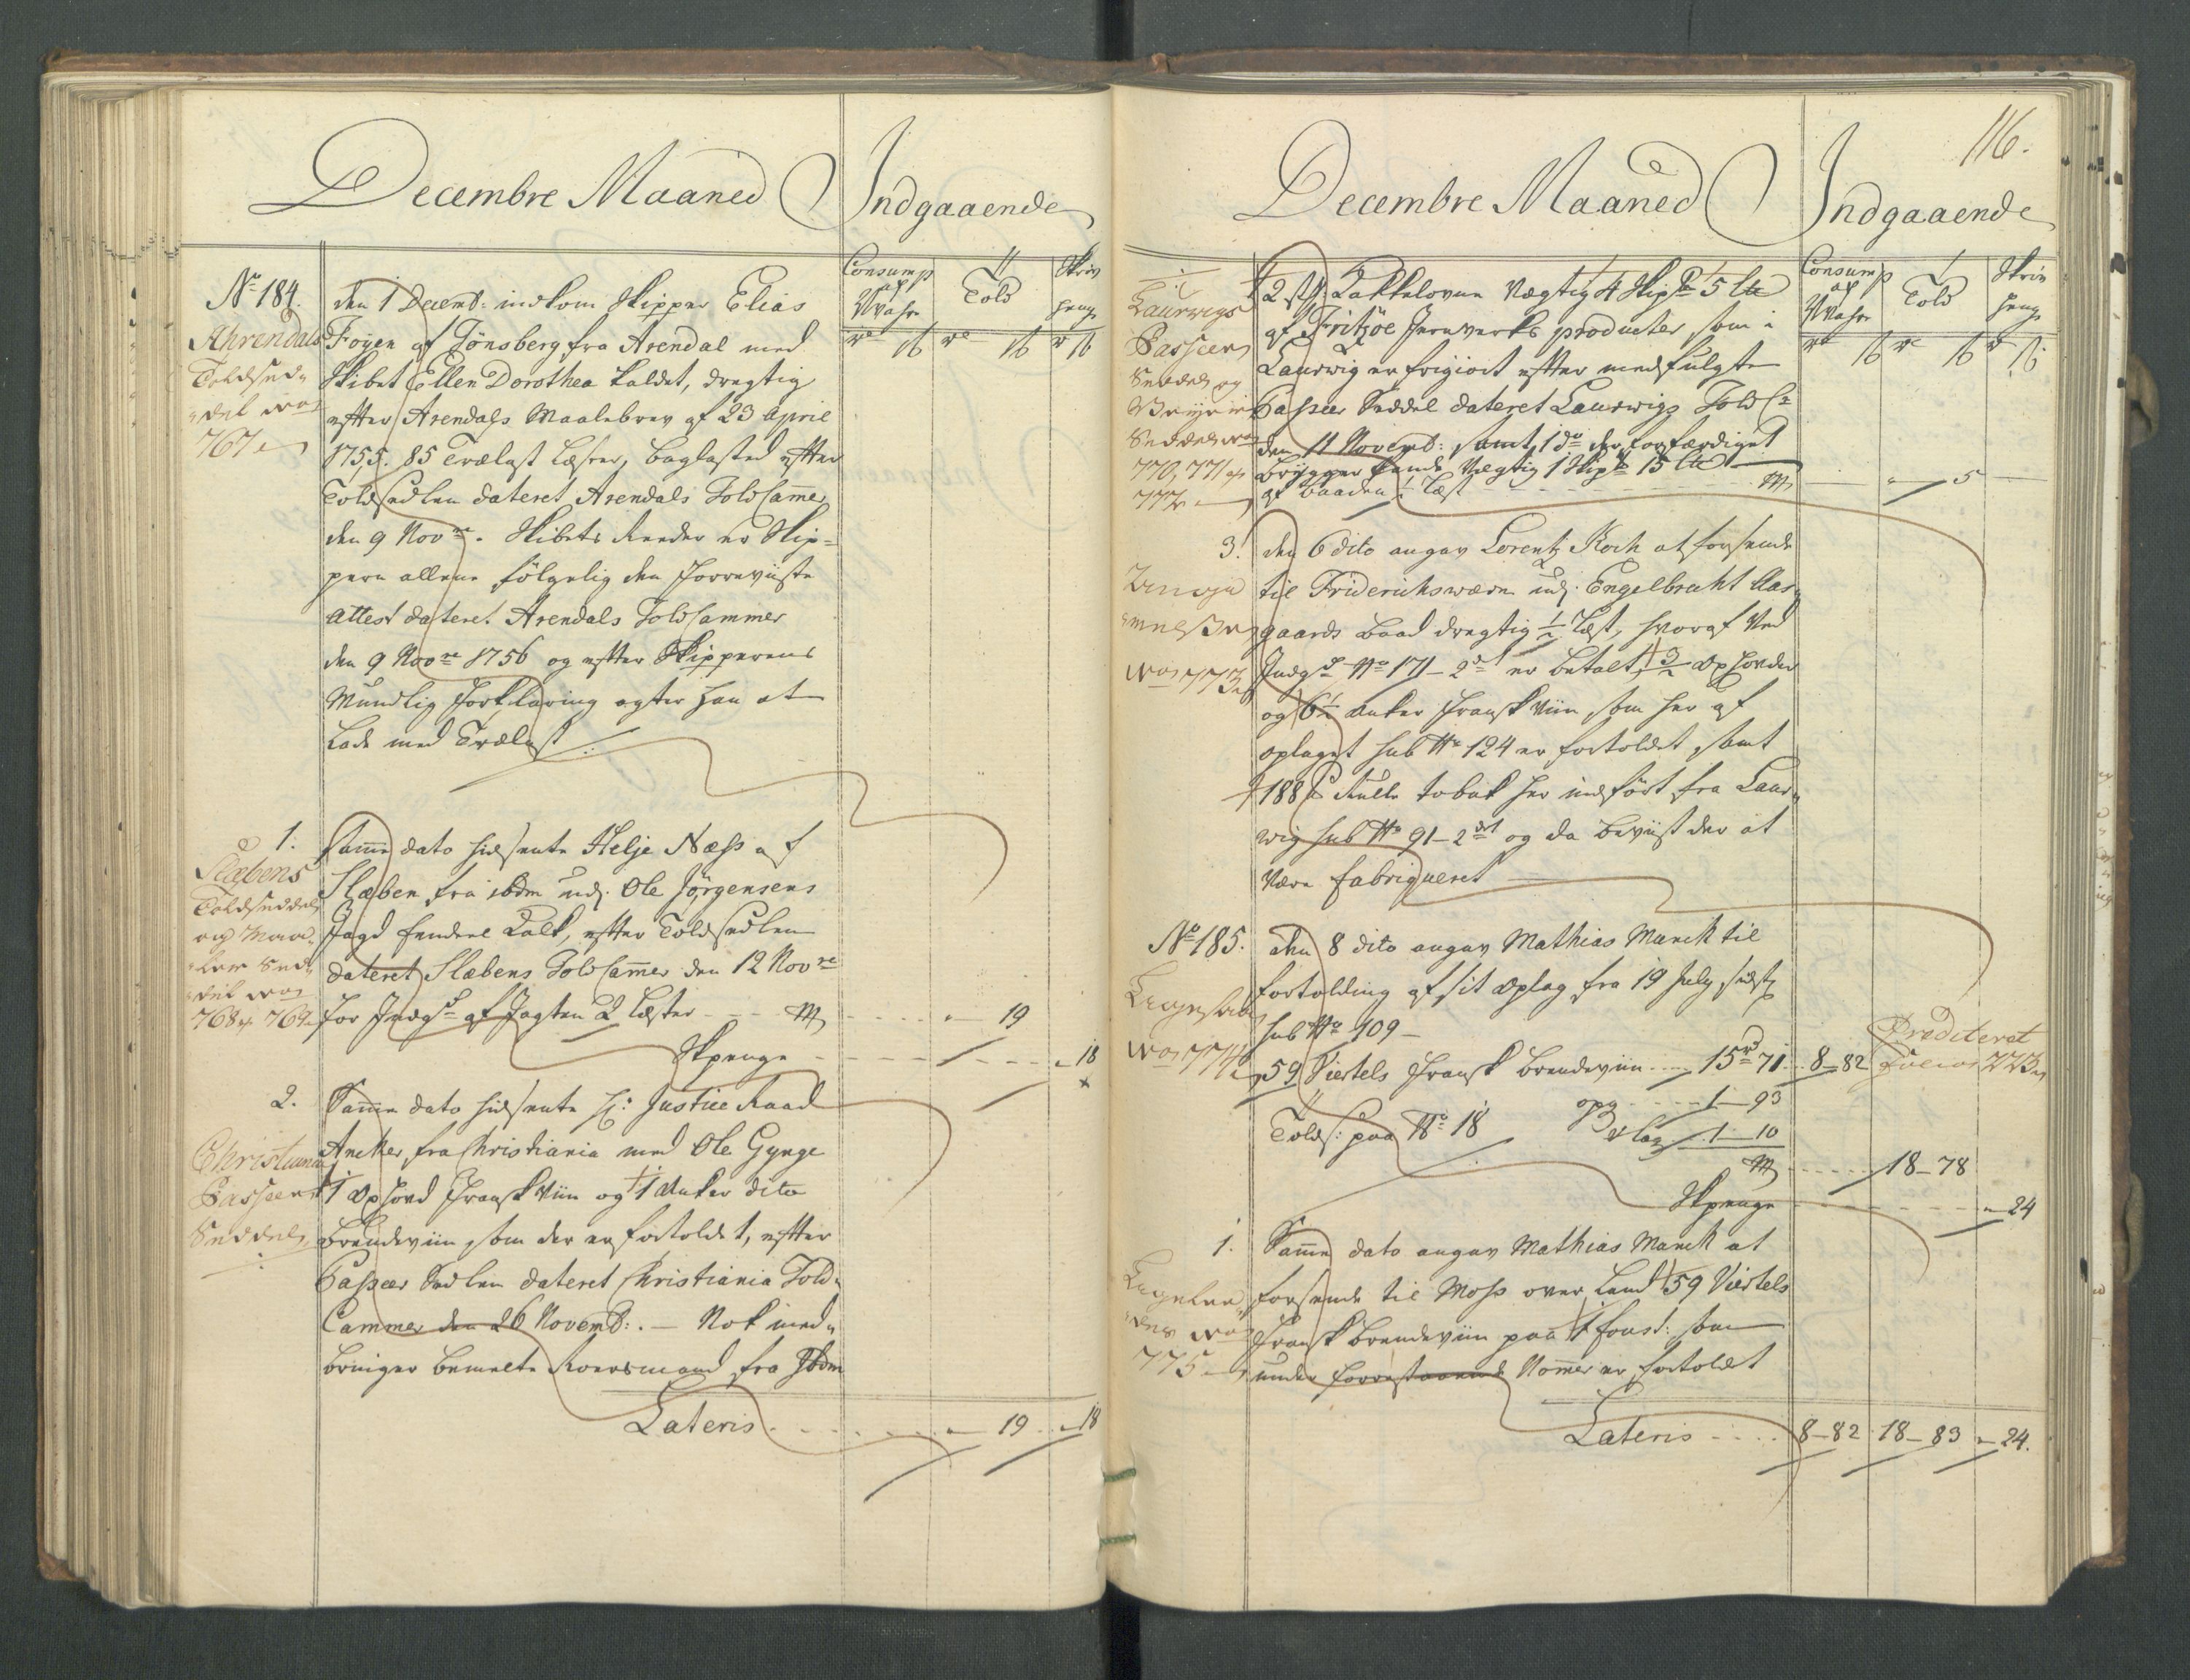 Decembre Maaned Indgaaende
Consump af Wahr
Told
Skriv penge
rd ß rd ß r ß
No 184.
Ahrendals
Toldsed-
del No
767
den 1 Decemb: indkom Skipper Elias
Foyen af Tönsberg fra Arendal med
Skibet Ellen Dorothea kaldet, drægtig
efter Arendals Maalebrev af 23 April
1755. 85 Trælast Læster, baglasted efter
Toldsedlen dateret Arendals Told Cammer
den 9 Novre. Skibets Reeder er Skip-
peren allene følgelig den forreviiste
attest dateret Arendals Told Cammer
den 9 Novre 1756 og efter Skipperens
Mundlig forklaring agter han at
lade med Trælast
1.
Slæbens
Toldseddel
og Maa-
ler Sed-
del No
768 & 769
Samme dato hidsente Helje Næss af
Slæben fra ibdm udj. Ole Jörgensens
Jagd Kalk, efter Toldsedlen
dateret Slæbens Told Cammer den 12 Novre
for Indgd af Jagten 2 Læster - - - 19
Skpenge - - - 18
2.
Christiania
Passeer
Seddel
Samme dato hidsente Hr: Justice Raad
Ancker fra Christiania med Ole Gynge
1 Oxhoved Fransk Viin og 1 Anker dito
Brendeviin som der er fortoldet, efter
Passeer Sedlen dateret Christiania Told-
Cammer den 26 Novemb:. - Nok ind-
bringer bemelte Roersmand fra Ibdm
Lateris - - - 19 - 18
116.
Decembre Maaned Indgaaende
Consump af Wahr
Told
Skriv penge
rd ß rd ß r ß
Laurwigs
Passeer
Seddel og
Seddel No
770, 771 og
772
2 st Kakkelovne Vægtig 4 Skip 5 
af Fritzöe Jernverks producter, som i
Laurwig er frigiort efter medfulgte
Passeer Seddel dateret Laurwigs Told Cr
den 11 Novemb: samt 1 do der forfærdiget
Brygger Vægtig 1 Skip 15
af Baaden 1/2 Læst - - - 5
3.
No 773
den 6 dito angav Lorentz Koch at forsende
til Friderichswærn udj. Engelbreht Aas-
gaards Baad drægtig 1/2 Læst, hvoraf Ved
Indgd No 171 - 2d er betalt, 3/2 Oxhoveder
og 6 1/2 Anker Fransk Viin som her af
oplaget sub No 124 er fortoldet, samt
188 Rulle tobak her indført fra Laur-
wig sub No 91 - 2det og da beviist der at
være fabriqueret
No 185.
No 774
den 8 dito angav Mathias Manck til
fortolding af sit Oplag fra 19 July sidst
sub No 109 -
59 Viertels Fransk Brendeviin - - 15 rd 71 - 8 - 82
Crediteret
Folio 223
opg - - - 1 - 93
Tolds: paa No 18 1 - 10
18 - 78
Skpenge - - - 24
1.
No
775
Samme dato angav Mathias Manck at
forsende til Moss over Land 59 Viertels
Fransk Brendeviin paa 1 foust: som
under forrestaaende Nommer er fortoldet
Lateris - - - 8 - 82 18 - 83 - 24.